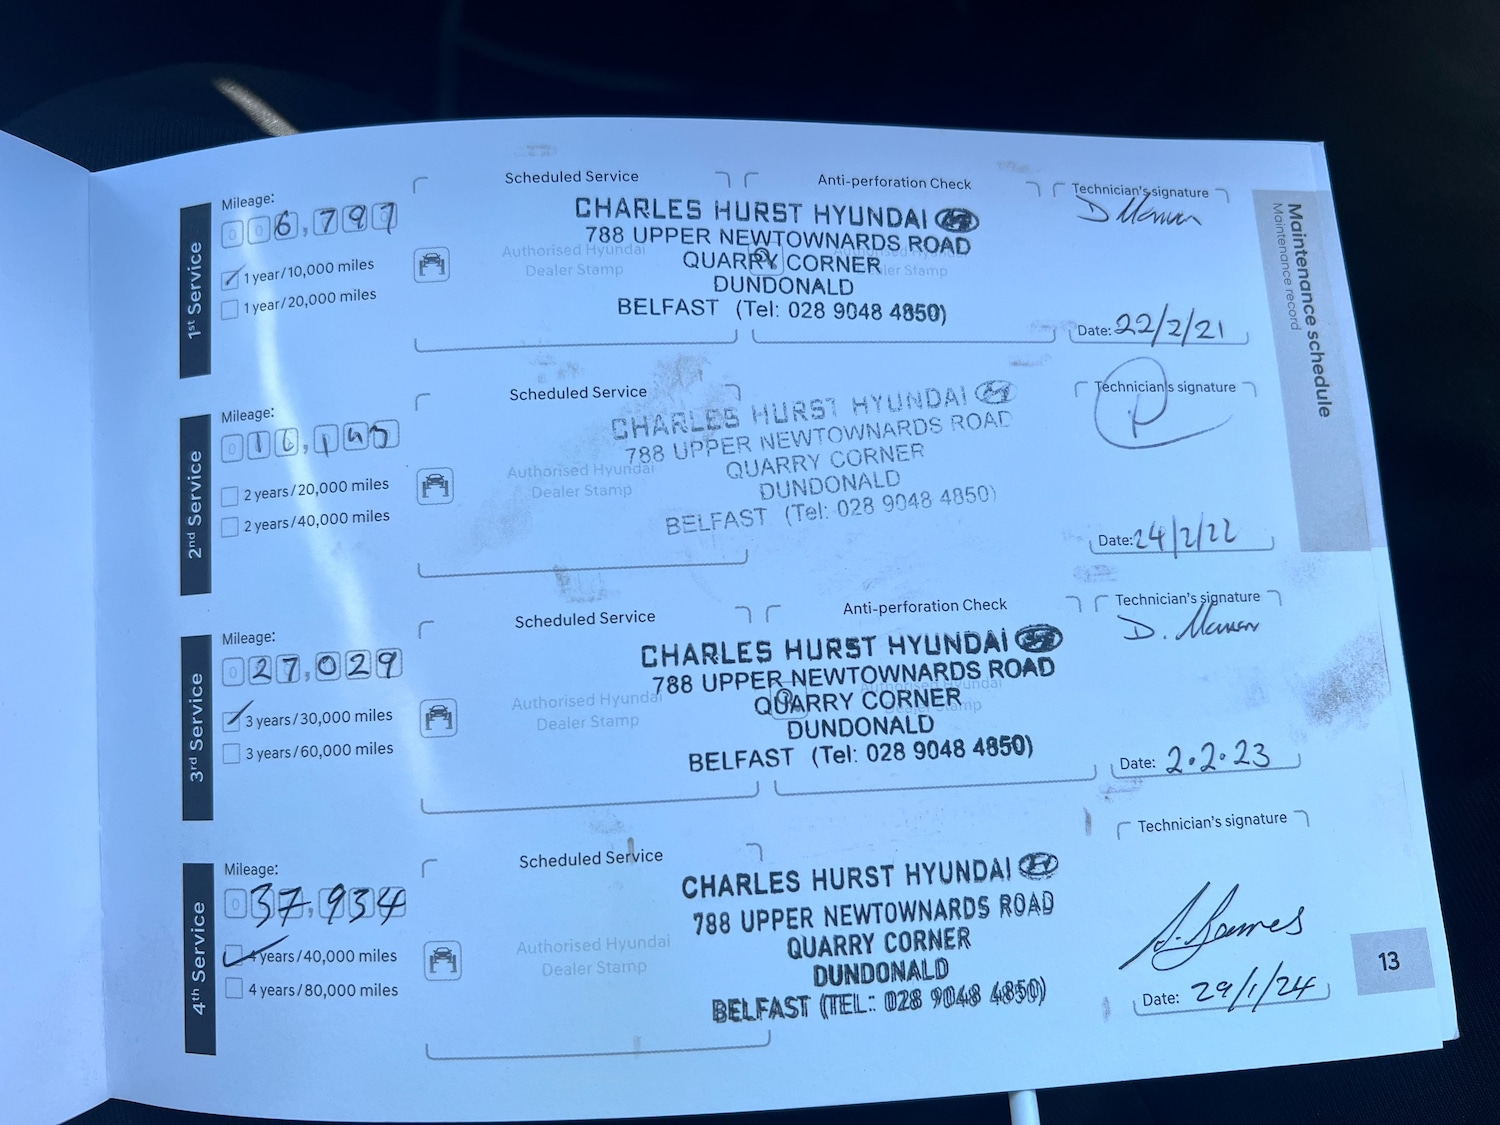 Maintenance schedule
Maintenance record
1st Service
Mileage:
006,797
1 year/10,000 miles
1 year/20,000 miles
Scheduled Service
Authorised Hyundai
Dealer Stamp
Anti-perforation Check
CHARLES HURST HYUNDAI
788 UPPER NEWTOWNARDS ROAD
QUARRY CORNER
DUNDONALD
BELFAST (Tel: 028 9048 4850)
Technician's signature
Date: 22/2/21
2nd Service
Mileage:
2 years/20,000 miles
2 years/40,000 miles
Scheduled Service
Authorised Hyundai
Dealer Stamp
CHARLES HURST HYUNDAI
788 UPPER NEWTOWNARDS ROAD
QUARRY CORNER
DUNDONALD
BELFAST (Tel: 028 9048 4850)
Technician's signature
Date: 24/2/22
3rd Service
Mileage:
027,029
3 years/30,000 miles
3 years/60,000 miles
Scheduled Service
Authorised Hyundai
Dealer Stamp
Anti-perforation Check
Authorised Hyundai
Dealer Stamp
CHARLES HURST HYUNDAI
788 UPPER NEWTOWNARDS ROAD
QUARRY CORNER
DUNDONALD
BELFAST (Tel: 028 9048 4850)
Technician's signature
D.
Date: 2.2.23
4th Service
Mileage:
037,934
4 years/40,000 miles
4 years/80,000 miles
Scheduled Service
Authorised Hyundai
Dealer Stamp
CHARLES HURST HYUNDAI
788 UPPER NEWTOWNARDS ROAD
QUARRY CORNER
DUNDONALD
BELFAST (TEL.: 028 9048 4850)
Technician's signature
Date: 29/1/24
13